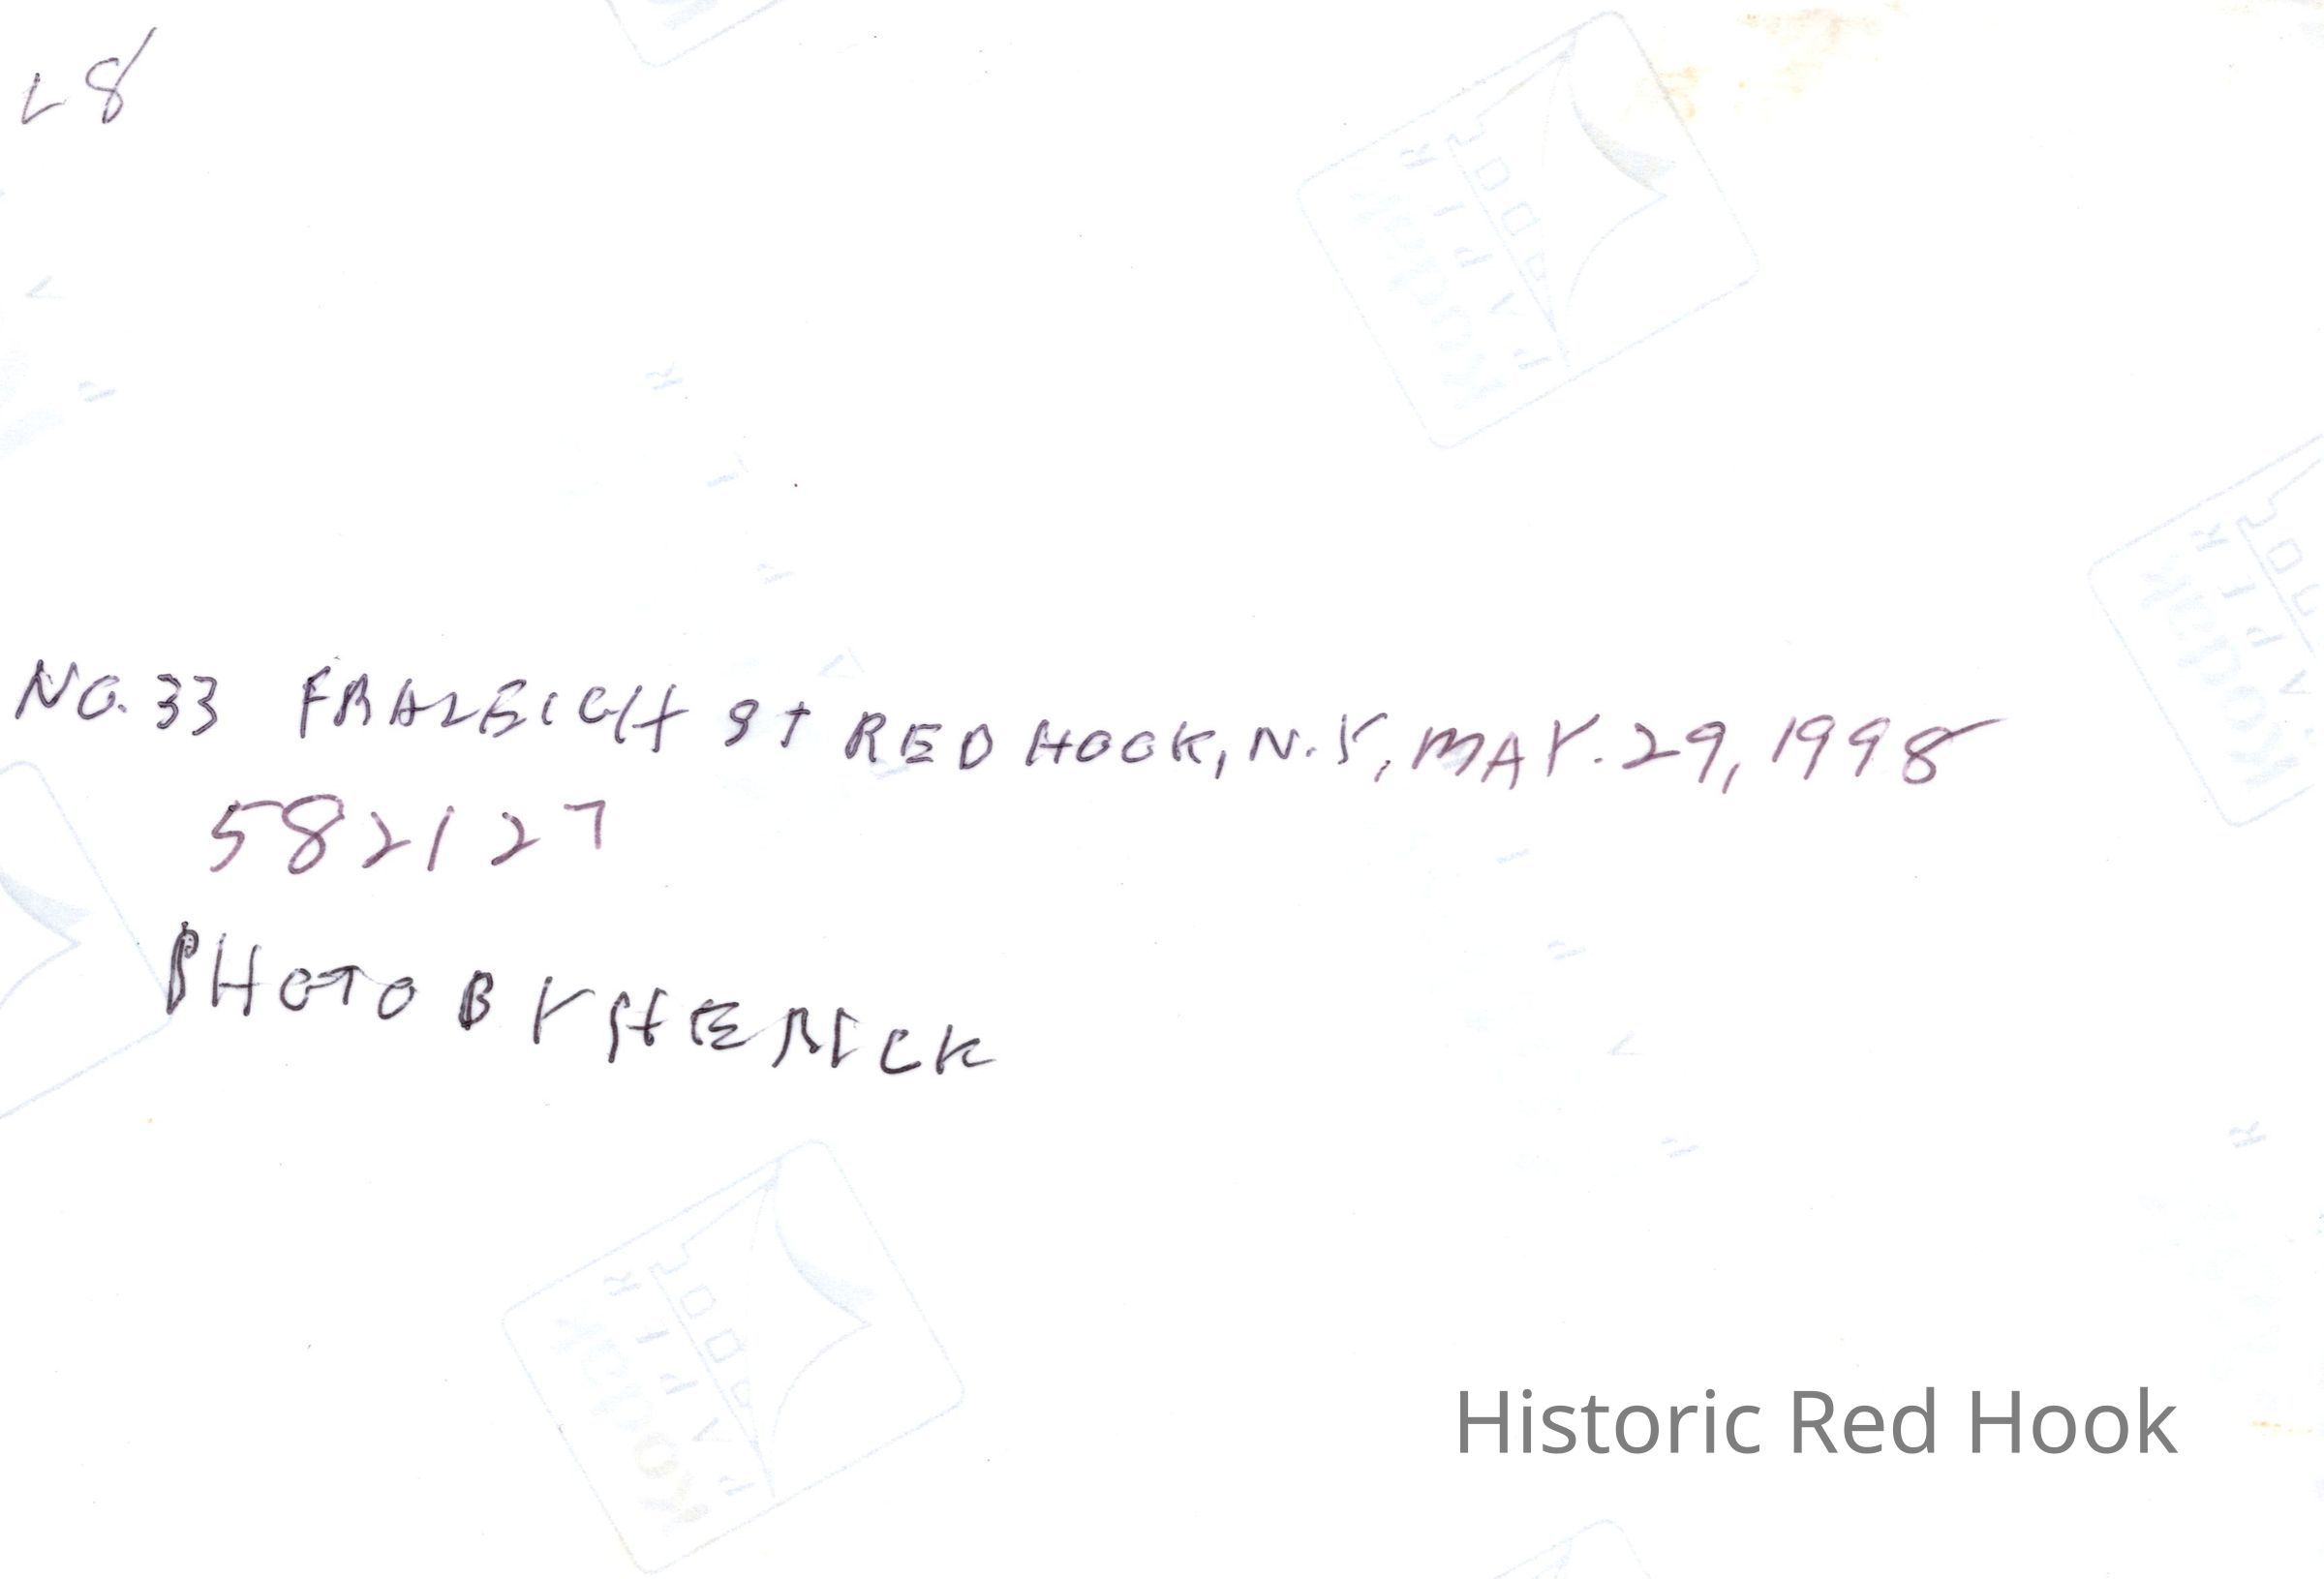 L8
NO. 33 FRALEIGH ST RED HOOK, N.Y, MAY. 29, 1998
582127
PHOTO BY HERICK
Historic Red Hook